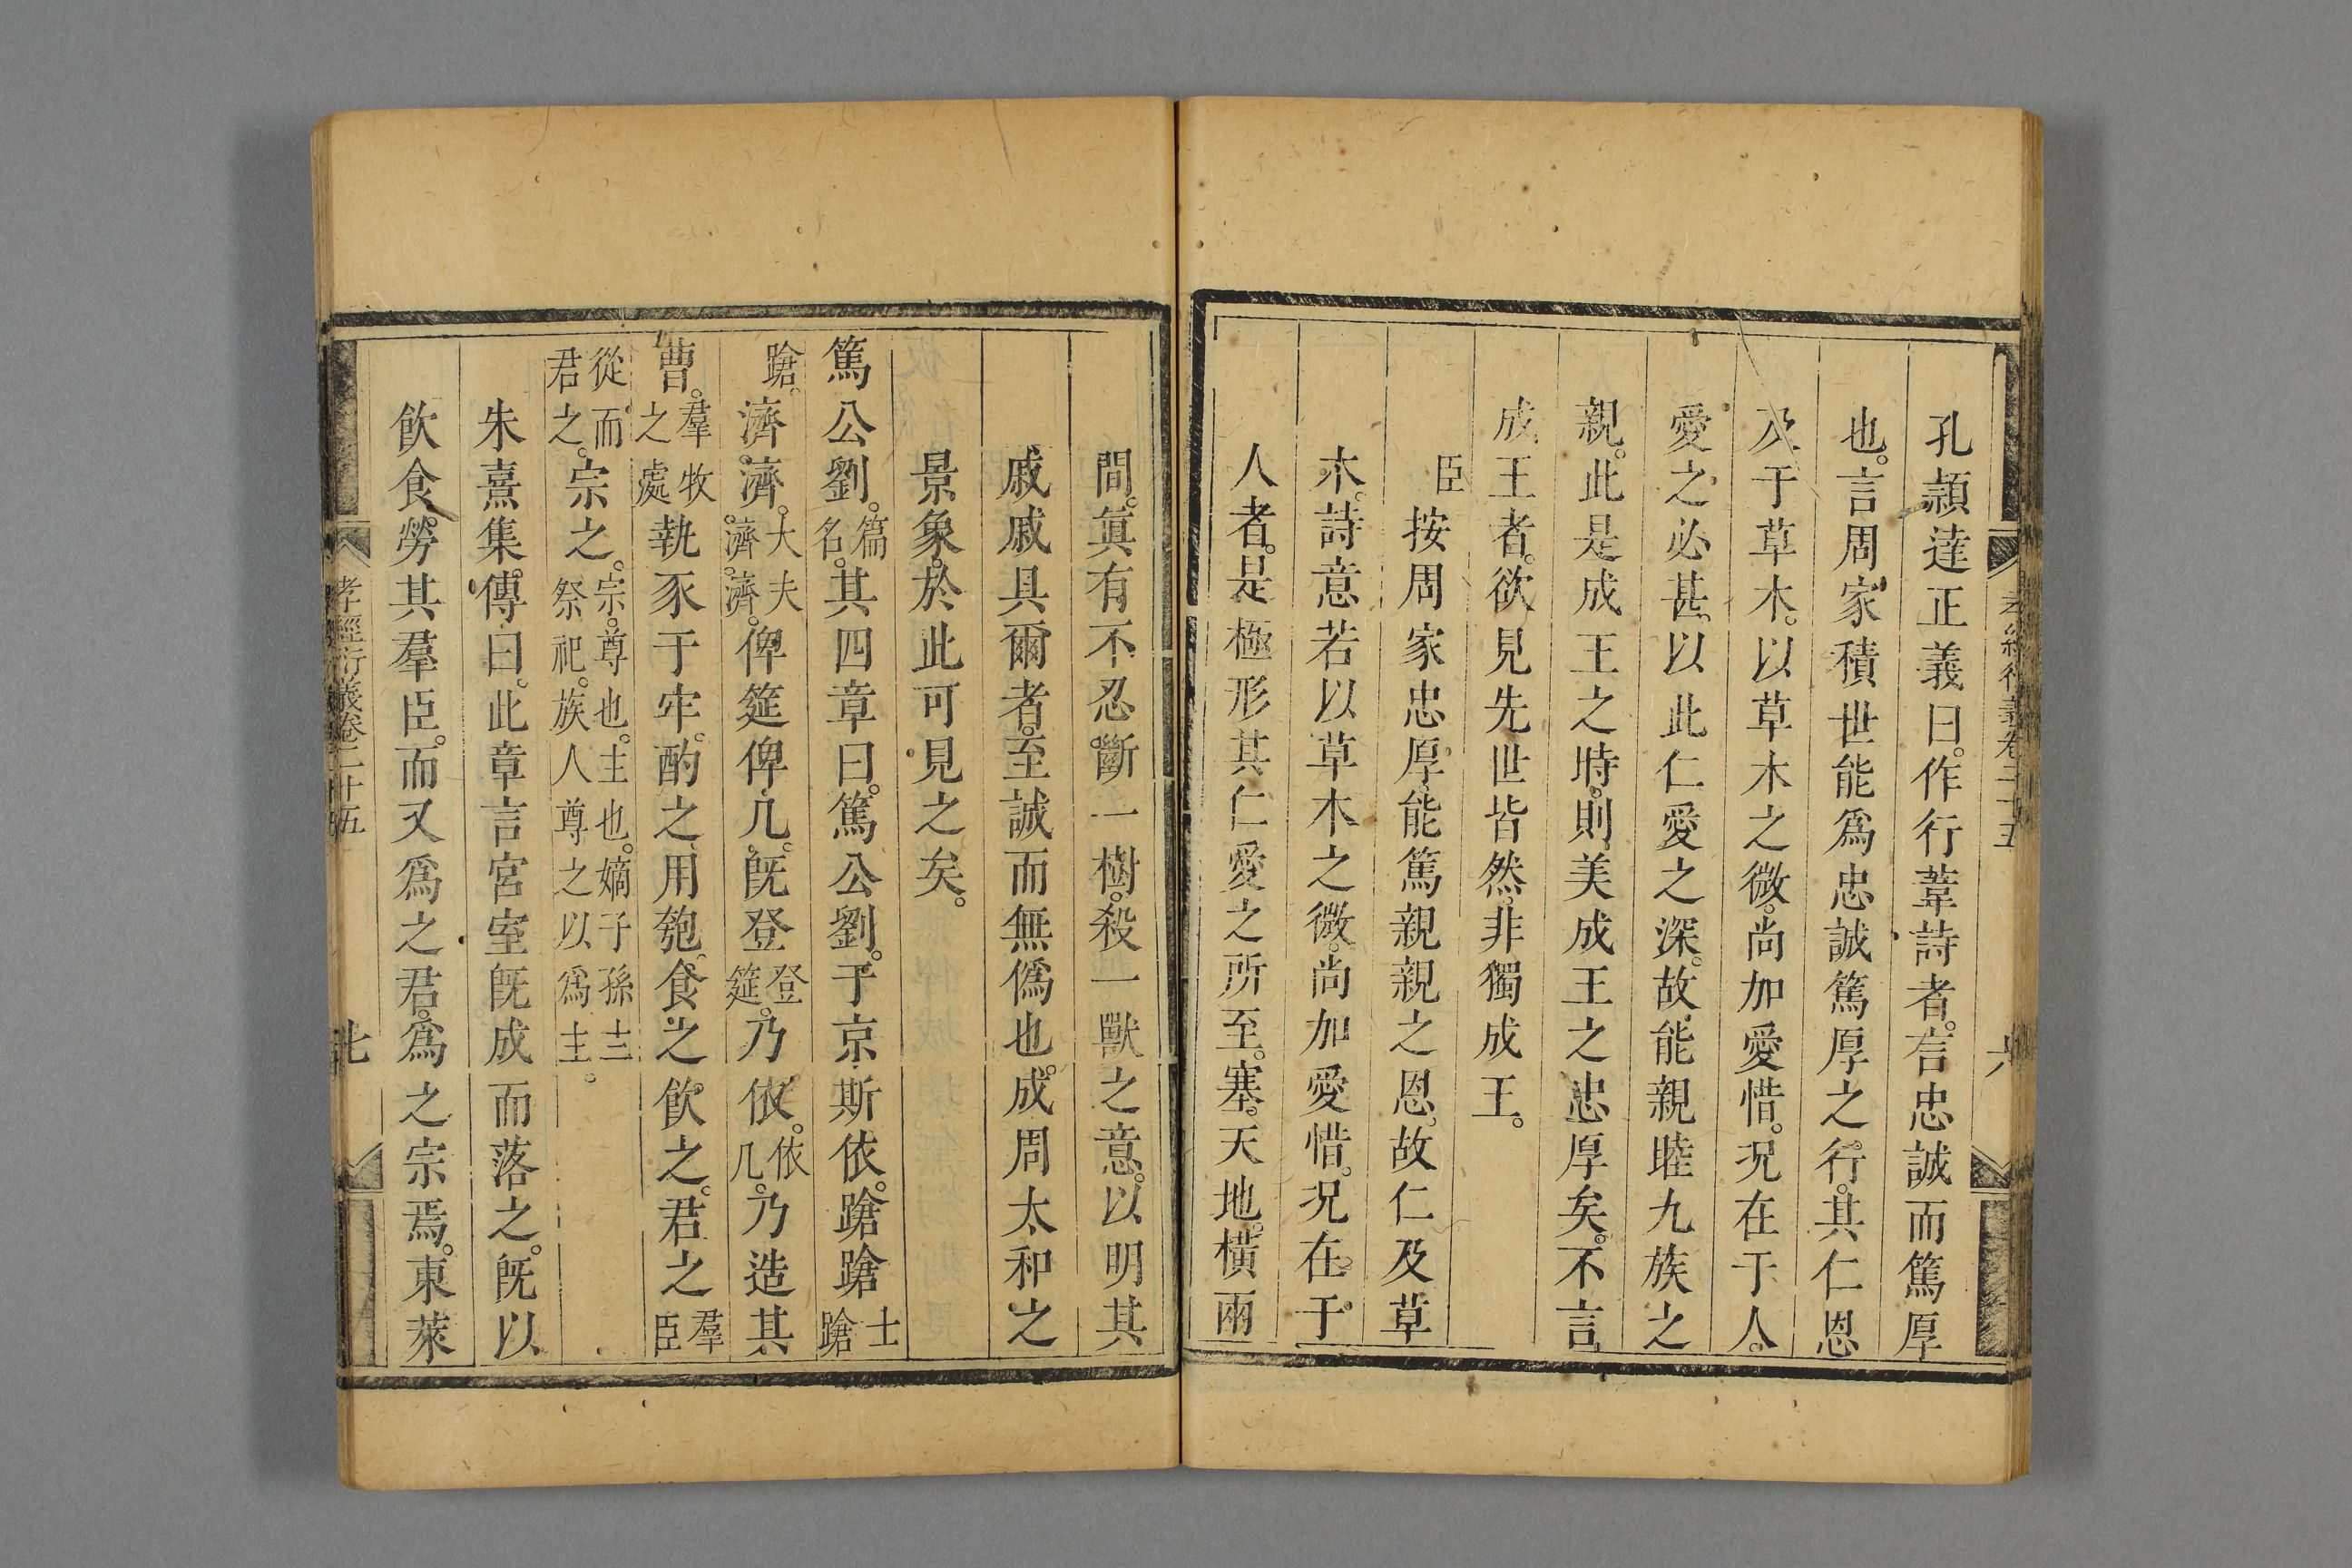 孔頴達正義曰。作行葦詩者。言忠誠而篤厚
也。言周家積世能爲忠誠篤厚之行。其仁恩
及于草木。以草木之微。尚加愛惜。況在于人。
愛之必甚。以此仁愛之深。故能親睦九族之
親。此是成王之時。則美成王之忠厚矣。不言
成王者。欲見先世皆然。非獨成王。
臣按周家忠厚。能篤親親之恩。故仁及草
木。詩意若以草木之微。尚加愛惜。況在于
人者。是極形其仁愛之所至。塞天地。橫兩
間。眞有不忍斷一樹。殺一獸之意。以明其
戚戚具爾者。至誠而無僞也。成周太和之
景象。於此可見之矣。
篤公劉。篇名。其四章曰。篤公劉。于京斯依。蹌蹌士蹌
蹌。濟濟。大夫濟濟。俾筵俾几。旣登登筵。乃依。依几。乃造其
曹。羣牧之處執豕于牢。酌之用匏。食之飮之。君之羣臣
從而君之。宗之。宗。尊也。主也。嫡子孫主祭祀。族人尊之以爲主。
朱熹集傳曰。此章言宮室旣成而落之。旣以
飮食勞其羣臣。而又爲之君。爲之宗焉。東萊
孝經衍義卷二十五
六
孝經衍義卷二十五
七